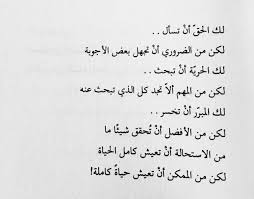 لك الحقّ أنْ تسأل . .
لكن من الضروري أنْ تجهل بعض الأجوبة
لك الحريّة أنْ تبحث . .
لكن من المهم ألاّ تجد كل الذي تبحث عنه
لك المبرّر أنْ تخسر . .
لكن من الأفضل أنْ تُحقق شيئًا ما
من الاستحالة أنْ تعيش كامل الحياة
لكن من الممكن أنْ تعيش حياةً كاملة!